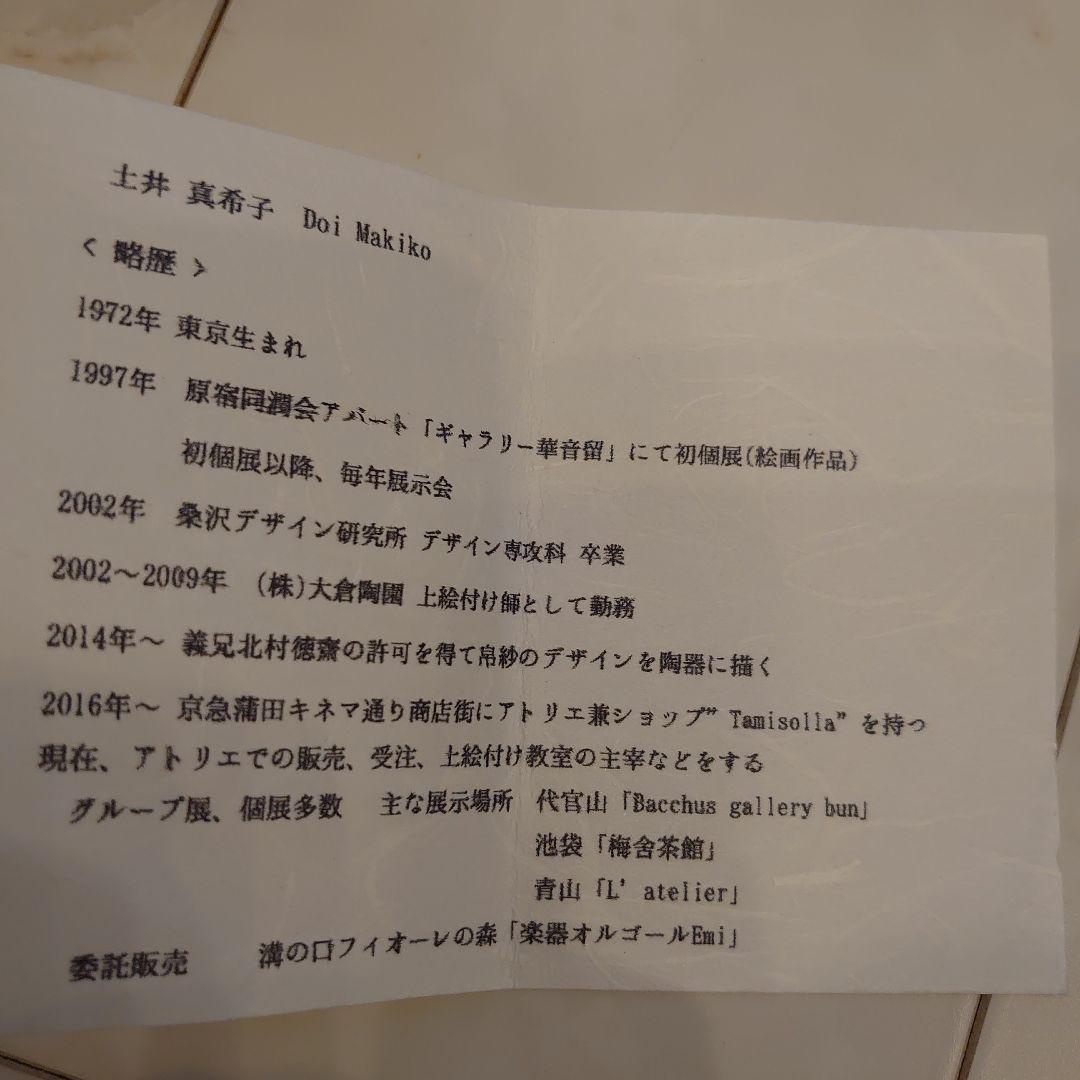 土井 真希子 Doi Makiko
< 略歴 >
1972年 東京生まれ
1997年 原宿同潤会アパート「ギャラリー華音留」にて初個展(絵画作品)
初個展以降、毎年展示会
2002年 桑沢デザイン研究所 デザイン専攻科 卒業
2002～2009年 (株)大倉陶園 上絵付け師として勤務
2014年～ 義兄北村徳齋の許可を得て帛紗のデザインを陶器に描く
2016年～ 京急蒲田キネマ通り商店街にアトリエ兼ショップ”Tamisolla”を持つ
現在、アトリエでの販売、受注、上絵付け教室の主宰などをする
グループ展、個展多数 主な展示場所 代官山「Bacchus gallery bun」
池袋「梅舎茶館」
青山「L’atelier」
委託販売 溝の口フィオーレの森「楽器オルゴールEmi」